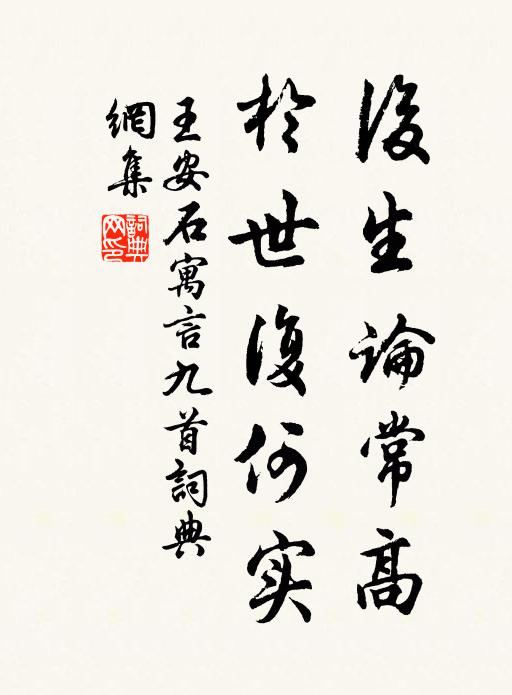 後生論常高
於世復何实
王安石寓言九首詞典
網集
詞典網印